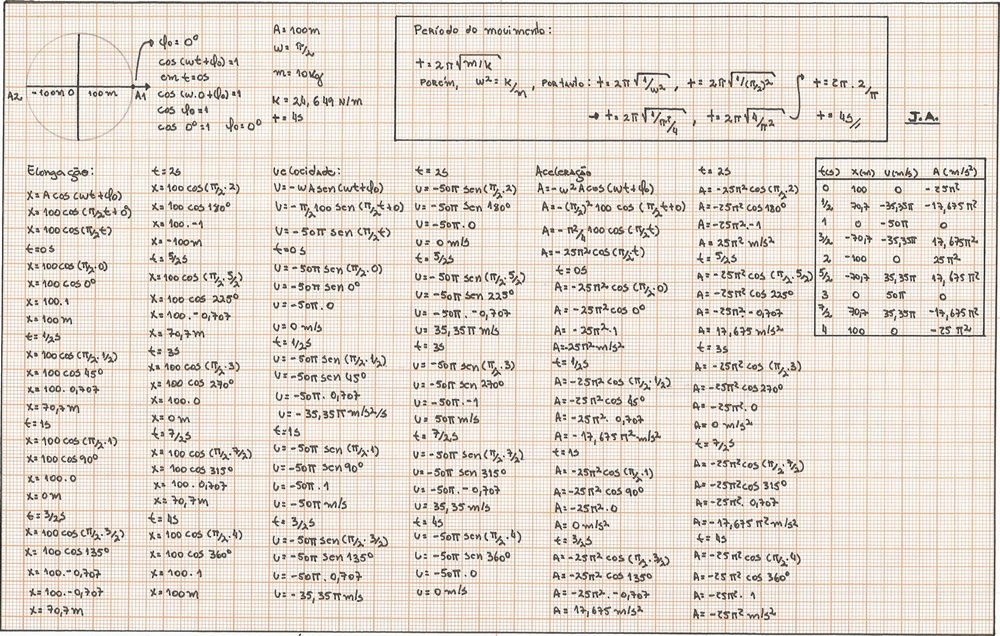 A2 -100m 0 100m A1
φ₀=0°
cos(wt+φ₀)=1
em t=0s
cos(w.0+φ₀)=1
cos φ₀=1
cos 0°=1 φ₀=0°
A=100m
w=π/2
m=10Kg
K=24,649 N/m
t=4s
Período do movimento:
t=2π√m/K
Porém, w²=K/m, portanto: t=2π√1/w², t=2π√1/(π/2)²
→ t=2π√1/π²/4, t=2π√4/π²
t=2π.2/π
t=4s//
J.A.
Elongação:
x=A cos(wt+φ₀)
x=100 cos(π/2t+0)
x=100 cos(π/2t)
t=0s
x=100 cos(π/2.0)
x=100 cos 0°
x=100.1
x=100m
t=1/2s
x=100 cos(π/2.1/2)
x=100 cos 45°
x=100.0,707
x=70,7m
t=1s
x=100 cos(π/2.1)
x=100 cos 90°
x=100.0
x=0m
t=3/2s
x=100 cos(π/2.3/2)
x=100 cos 135°
x=100.-0,707
x=100.-0,707
x=70,7m
t=2s
x=100 cos(π/2.2)
x=100 cos 180°
x=100.-1
x=-100m
t=5/2s
x=100 cos(π/2.5/2)
x=100 cos 225°
x=100.-0,707
x=70,7m
t=3s
x=100 cos(π/2.3)
x=100 cos 270°
x=100.0
x=0m
t=7/2s
x=100 cos(π/2.7/2)
x=100 cos 315°
x=100.0,707
x=70,7m
t=4s
x=100 cos(π/2.4)
x=100 cos 360°
x=100.1
x=100m
Velocidade:
v=-wA sen(wt+φ₀)
v=-π/2 100 sen(π/2t+0)
v=-50π sen(π/2t)
t=0s
v=-50π sen(π/2.0)
v=-50π sen 0°
v=-50π.0
v=0 m/s
t=1/2s
v=-50π sen(π/2.1/2)
v=-50π sen 45°
v=-50π.0,707
v=-35,35π m/s²/s
t=1s
v=-50π sen(π/2.1)
v=-50π sen 90°
v=-50π.1
v=-50π m/s
t=3/2s
v=-50π sen(π/2.3/2)
v=-50π sen 135°
v=-50π.0,707
v=-35,35π m/s
t=2s
v=-50π sen(π/2.2)
v=-50π sen 180°
v=-50π.0
v=0 m/s
t=5/2s
v=-50π sen(π/2.5/2)
v=-50π sen 225°
v=-50π.-0,707
v=35,35π m/s
t=3s
v=-50π sen(π/2.3)
v=-50π sen 270°
v=-50π.-1
v=50π m/s
t=7/2s
v=-50π sen(π/2.7/2)
v=-50π sen 315°
v=-50π.-0,707
v=35,35 m/s
t=4s
v=-50π sen(π/2.4)
v=-50π sen 360°
v=-50π.0
v=0 m/s
Aceleração
A=-w²A cos(wt+φ₀)
A=-(π/2)² 100 cos(π/2t+0)
A=-π²/4 100 cos(π/2t)
A=-25π² cos(π/2t)
t=0s
A=-25π² cos(π/2.0)
A=-25π² cos 0°
A=-25π².1
A=-25π² m/s²
t=1/2s
A=-25π² cos(π/2.1/2)
A=-25π² cos 45°
A=-25π².0,707
A=-17,675π² m/s²
t=1s
A=-25π² cos(π/2.1)
A=-25π² cos 90°
A=-25π².0
A=0 m/s²
t=3/2s
A=-25π² cos(π/2.3/2)
A=-25π² cos 135°
A=-25π².-0,707
A=17,675 m/s²
t=2s
A=-25π² cos(π/2.2)
A=-25π² cos 180°
A=-25π².-1
A=25π² m/s²
t=5/2s
A=-25π² cos(π/2.5/2)
A=-25π² cos 225°
A=-25π².-0,707
A=17,675 m/s²
t=3s
A=-25π² cos(π/2.3)
A=-25π² cos 270°
A=-25π².0
A=0 m/s²
t=7/2s
A=-25π² cos(π/2.7/2)
A=-25π² cos 315°
A=-25π².0,707
A=-17,675π² m/s²
t=4s
A=-25π² cos(π/2.4)
A=-25π² cos 360°
A=-25π².1
A=-25π² m/s²
t(s) x(m) v(m/s) A(m/s²)
0 100 0 -25π²
1/2 70,7 -35,35π -17,675π²
1 0 -50π 0
3/2 -70,7 -35,35π 17,675π²
2 -100 0 25π²
5/2 -70,7 35,35π 17,675π²
3 0 50π 0
7/2 70,7 35,35π -17,675π²
4 100 0 -25π²